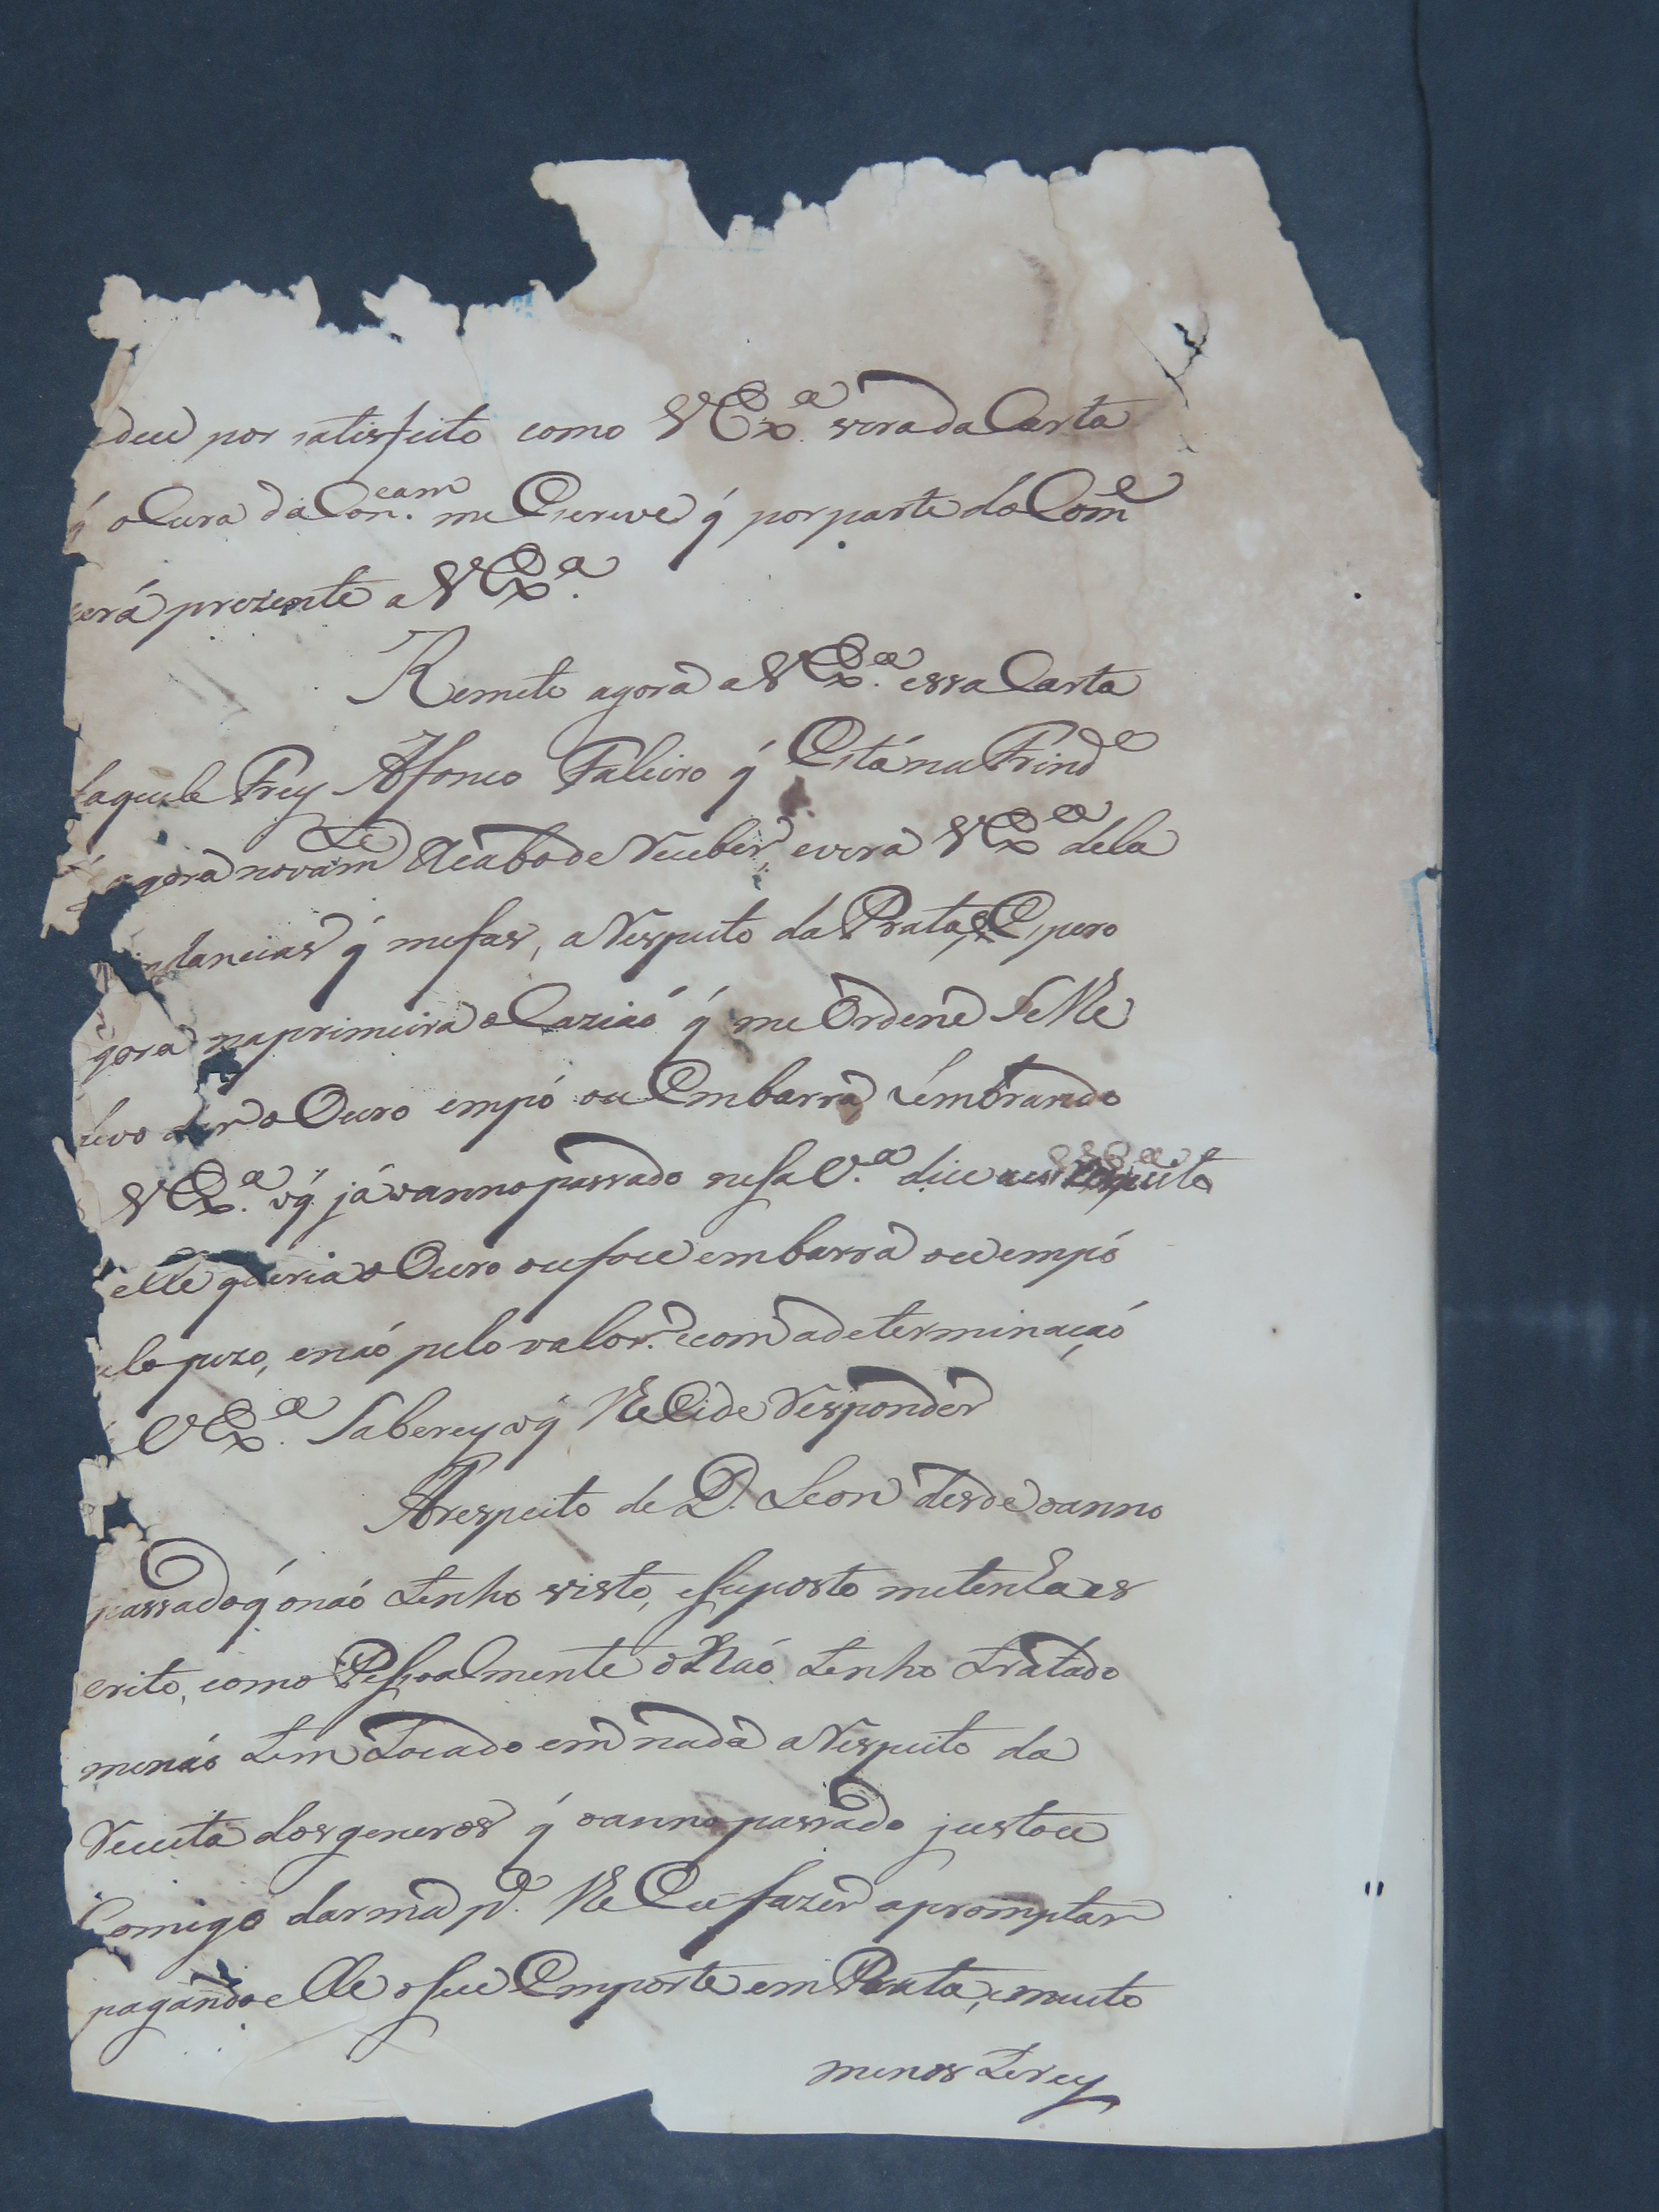 deu por satisfeito como VEx.ª vera da Carta
q̃ o Cura da Con.cam me Escreve q̃ por parte do Com.e
será prezente a VEx.ª
Remeto agora a VEx.ª essa Carta
daquele Frey Afonco Faleiro q̃ Está na Trind.e
agora novam.te Acabo de Receber, e vera VEx.ª dela
instancias q̃ me fas, a Respeito da Prata, e Espero
agora na primeira oCaziaó q̃ me Ordene Se lhe
devo dar o Ouro empó ou Embarra Lembrando
VEx.ª oq̃ já o anno passado nessa V.ª dice
elle queria o Ouro ou foce embarra ou empó
pelo pezo, enaó pelo valor. e com a determinaçaó
VEx.ª Saberey oq̃ lhe Eide Responder
Arespeito de D. Leon desde o anno
passado q̃ o naó tenho visto, e suposto me tenha es
crito, como Pessoalmente o Naó tenho tratado
me naó tem tocado em nada a Respeito da
Receita dos generos q̃ o anno passado justou
Comigo dar ma p.ª lhe Eu fazer apromptar
pagando elle o seu Emporte em Prata, e muito
menos terey